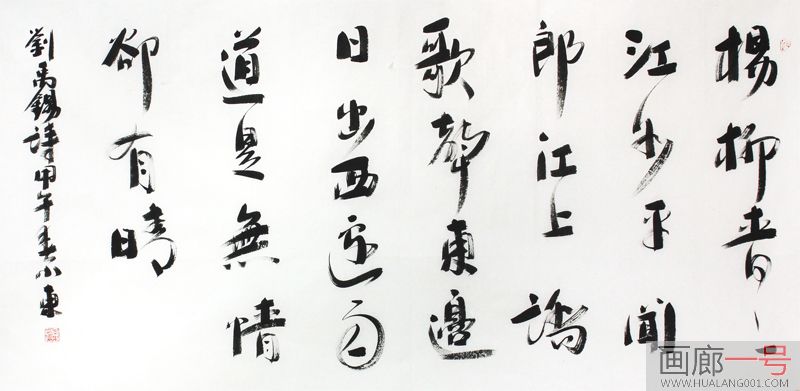 楊柳青〻
江水平聞
郎江上踏
歌聲東邊
日出西邊雨
道是無情
卻有晴
劉禹錫詩甲午春小東
画廊一号
WWW.HUALANG001.COM